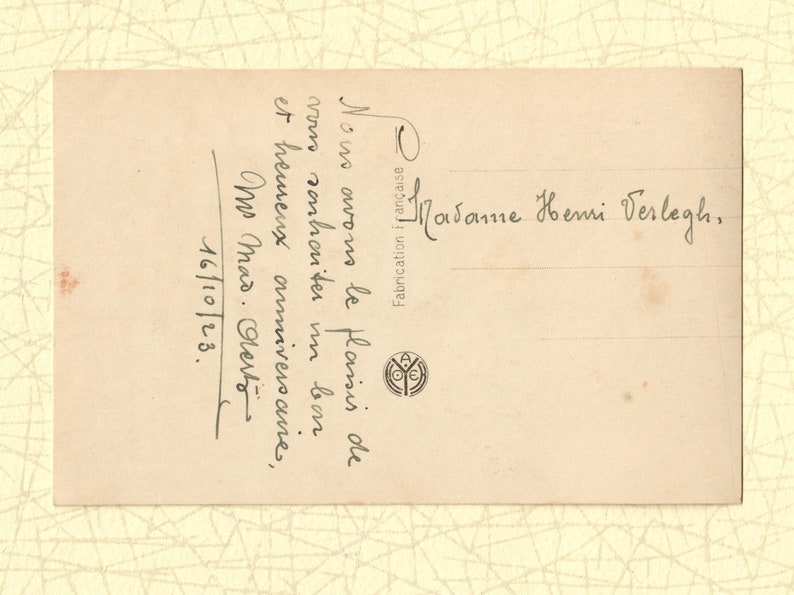 Nous avons le plaisir de
vous souhaiter un bon
et heureux anniversaire,
Mr Mad. Aerts
16/10/23.
Fabrication Française
Madame Henri Verlegh.